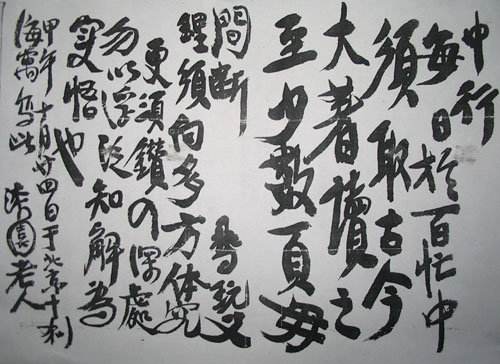 中行
每日於百忙中
須取古今
大著讀之
至少數頁毋
間斷 尋玩义
理須向多方体究
更須鑽入深處
勿以浮泛知解為
实悟也
甲午十月廿四日于北京十刹
海寓寫此 漆園老人